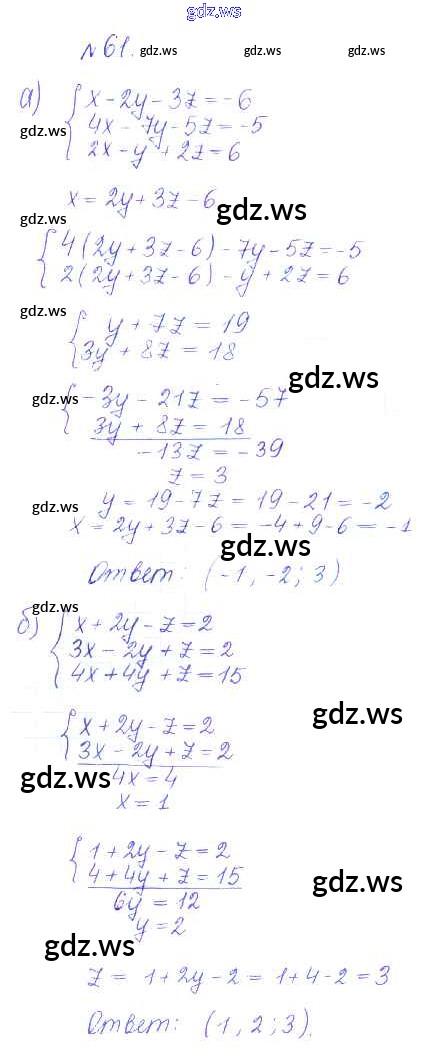 gdz.ws
№61. gdz.ws gdz.ws gdz.ws
а) x - 2y - 3z = -6
gdz.ws 4x - 7y - 5z = -5
2x - y + 2z = 6
x = 2y + 3z - 6 gdz.ws
4(2y + 3z - 6) - 7y - 5z = -5
2(2y + 3z - 6) - y + 2z = 6
gdz.ws
y + 7z = 19
3y + 8z = 18
gdz.ws
gdz.ws -3y - 21z = -57
3y + 8z = 18
-13z = -39
z = 3
gdz.ws y = 19 - 7z = 19 - 21 = -2
x = 2y + 3z - 6 = -4 + 9 - 6 = -1
gdz.ws
Ответ: (-1, -2; 3)
gdz.ws
б) x + 2y - z = 2
3x - 2y + z = 2
4x + 4y + z = 15
gdz.ws
x + 2y - z = 2
3x - 2y + z = 2
gdz.ws 4x = 4
x = 1
1 + 2y - z = 2
4 + 4y + z = 15 gdz.ws
6y = 12
y = 2
gdz.ws
z = 1 + 2y - 2 = 1 + 4 - 2 = 3
Ответ: (1, 2; 3).